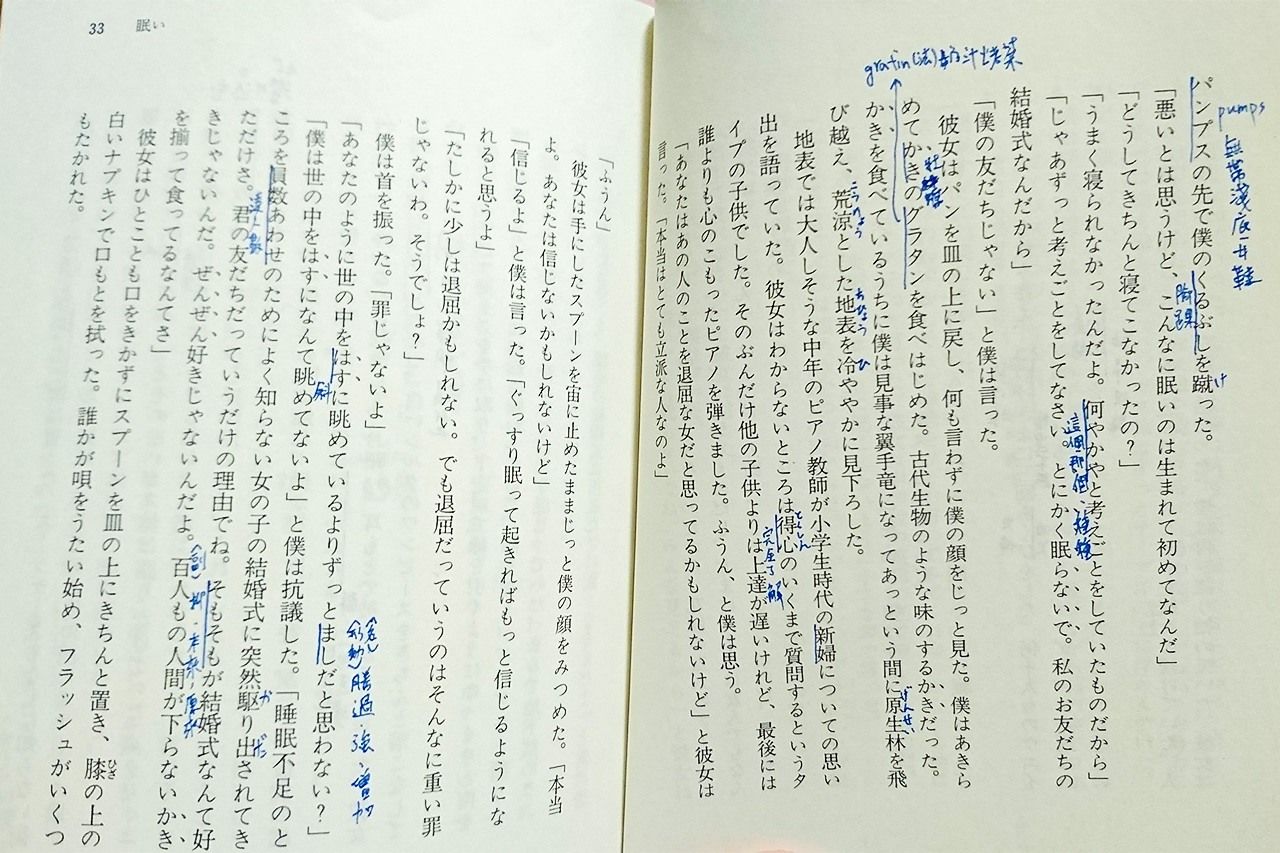 パンプスの先で僕のくるぶしを蹴った。
「悪いとは思うけど、こんなに眠いのは生まれて初めてなんだ」
「どうしてきちんと寝てこなかったの?」
「うまく寝られなかったんだよ。何やかやと考えごとをしていたものだから」
「じゃあずっと考えごとをしてなさい。とにかく眠らないで。私のお友だちの
結婚式なんだから」
「僕の友だちじゃない」と僕は言った。
彼女はパンを皿の上に戻し、何も言わずに僕の顔をじっと見た。僕はあきら
めてかきのグラタンを食べはじめた。古代生物のような味のするかきだった。
かきを食べているうちに僕は見事な翼手竜になってあっという間に原生林を飛
び越え、荒涼とした地表を冷ややかに見下ろした。
地表では大人しそうな中年のピアノ教師が小学生時代の新婦についての思い
出を語っていた。彼女はわからないところは得心のいくまで質問するというタ
イプの子供でした。そのぶんだけ他の子供よりは上達が遅いけれど、最後には
誰よりも心のこもったピアノを弾きました。ふうん、と僕は思う。
「あなたはあの人のことを退屈な女だと思ってるかもしれないけど」と彼女は
言った。「本当はとても立派な人なのよ」
pumps
無帶淺底女鞋
腳踝
け
這個那個、種種
(法)奶汁烤菜
牡蠣
こうりょう
ちひょう
ひ
げんせい
とくしん
完全了解
33 眠い
「ふうん」
彼女は手にしたスプーンを宙に止めたままじっと僕の顔をみつめた。「本当
よ。あなたは信じないかもしれないけど」
「信じるよ」と僕は言った。「ぐっすり眠って起きればもっと信じるようにな
れると思うよ」
「たしかに少しは退屈かもしれない。でも退屈だっていうのはそんなに重い罪
じゃないわ。そうでしょ?」
僕は首を振った。「罪じゃないよ」
「あなたのように世の中をはすに眺めているよりずっとましだと思わない?」
「僕は世の中をはすになんて眺めてないよ」と僕は抗議した。「睡眠不足のと
ころを員数あわせのためによく知らない女の子の結婚式に突然駆り出されてき
ただけさ。君の友だちだっていうだけの理由でね。そもそもが結婚式なんて好
きじゃないんだ。ぜんぜん好きじゃないんだよ。百人もの人間が下らないかき
を揃って食ってるなんてさ」
彼女はひとことも口をきかずにスプーンを皿の上にきちんと置き、膝の上の
白いナプキンで口もとを拭った。誰かが唄をうたい始め、フラッシュがいくつ
もたかれた。
斜
(形動)勝過、強、增加
か
だ
(副)
ひざ